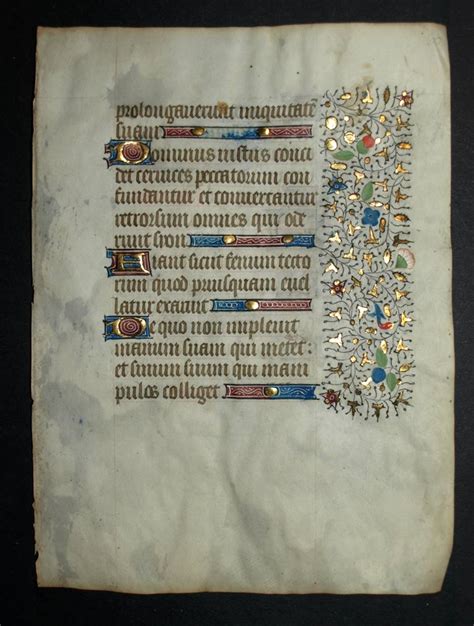 prolongauerunt iniquitatē
suam
Dominus iustus conci
det ceruices peccatorum con
fundantur et conuertantur
retrorsum omnes qui ode
runt sion
Fiant sicut fenum tecto
rum quod priusquam euel
latur exaruit
De quo non impleuit
manum suam qui metet:
et sinum suum qui mani
pulos colliget